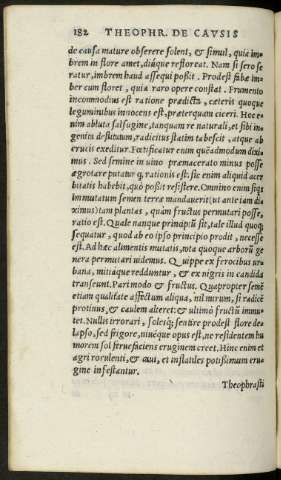 182 THEOPHR. DE CAVSIS
de causa mature obserere solent, & simul, quia im
brem in flore amet, diúque refloreat. Nam si sero se
ratur, imbrem haud assequi poßit. Prodest fabæ im
ber cum floret, quia raro opere constat. Frumento
incommodius est ratione prædicta, cæteris quoque
leguminibus innocens est, præterquam ciceri. Hoc e-
nim abluta salsugine, tanquam re naturali, et sibi in-
genita destitutum, radicitus statim tabescit, atque ab
erucis exeditur. Fœtificatur enim quēadmodum dixi
mus. Sed semine in uino præmacerato minus posse
ægrotare putatur q. rationis est. sic enim aliquid acer
bitatis habebit, quò poßit resistere. Omnino enim siqs
immutatum semen terræ mandauerit (ut ante iam di-
ximus) tam plantas, quàm fructus permutari posse,
ratio est. Quale nanque principiū sit, tale illud quoq;
sequatur, quod ab eo ipso principio prodit, necesse
est. Ad hæc alimentis mutatis, tota quoque arborū ge
nera permutari uidemus. Quippe ex ferocibus ur
bana, mitiáque redduntur, & ex nigris in candida
transeunt. Pari modo & fructus. Quapropter semē
etiam qualitate affectum aliqua, nil mirum, si radicē
protinus, & caulem alteret: & ultimò fructū immu-
tet. Nullis irrorari, solesq; sentire prodest flore de-
lapso, sed frigore, niuéque opus est, ne residentem hu
morem sol feruefaciens eruginem creet. Hinc enim et
agri rorulenti, & caui, et inflatiles potißimum eru-
gine infestantur.
Theophrasti